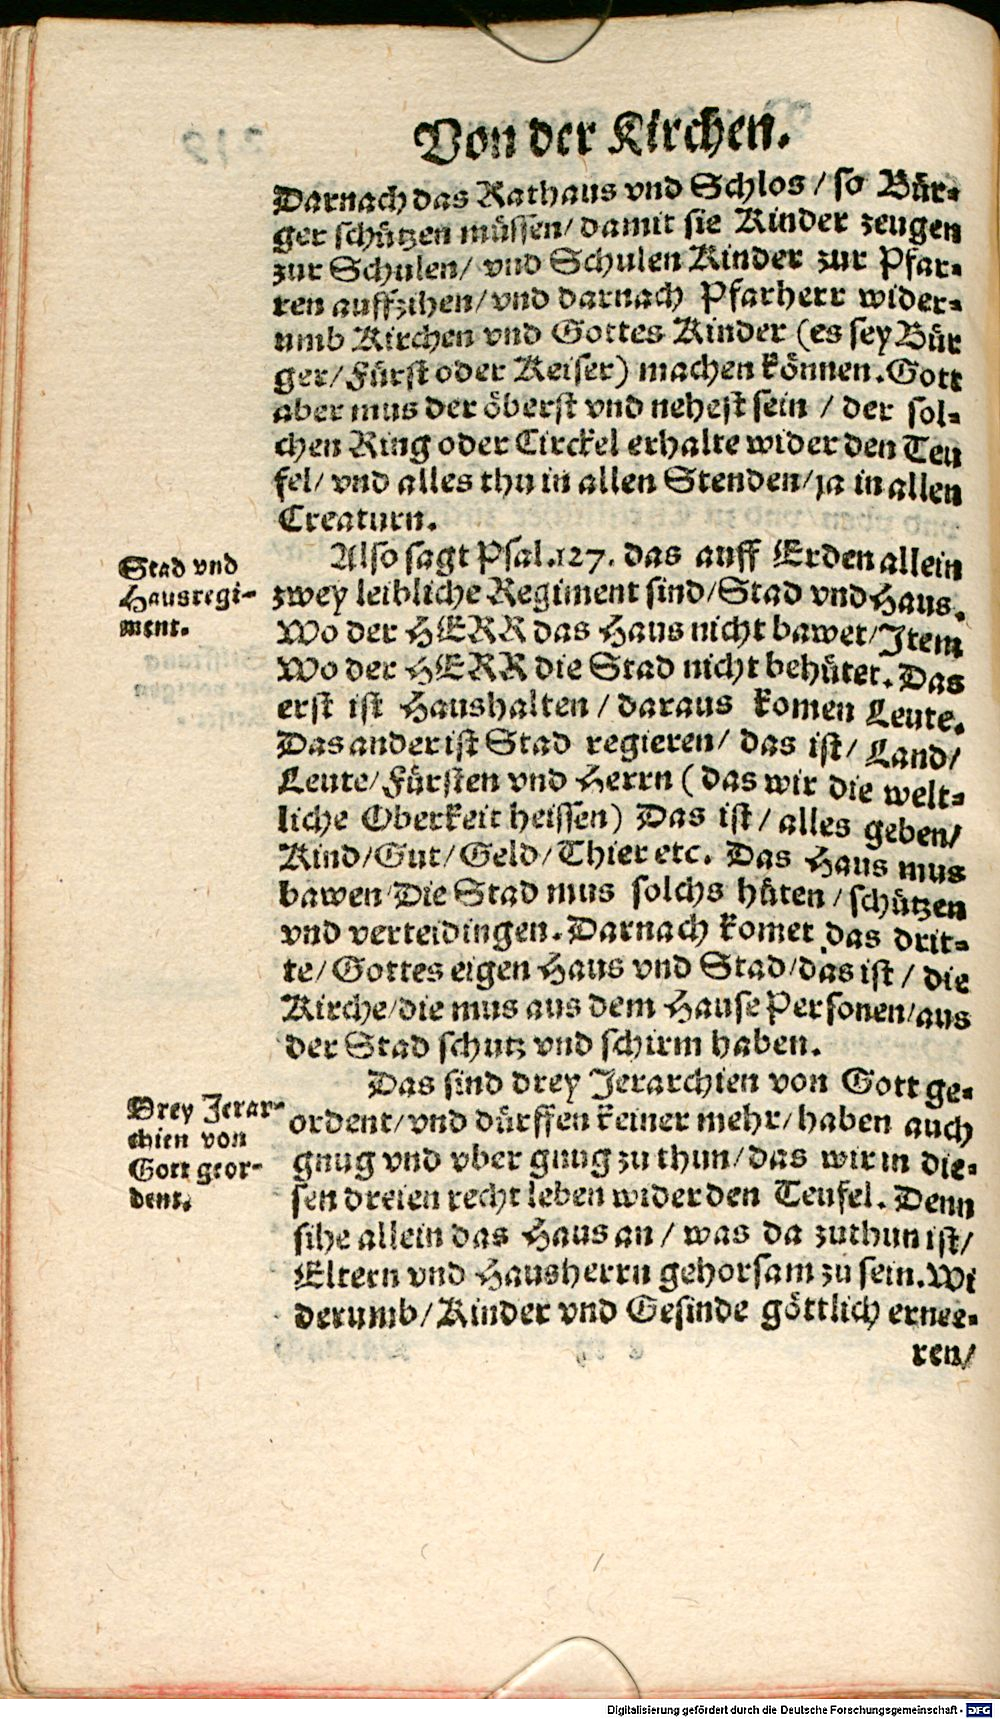 Von der Kirchen.
Darnach das Rathaus vnd Schlos / so Bür-
ger schützen müssen / damit sie Kinder zeugen
zur Schulen / vnd Schulen Kinder zur Pfar-
ren auffzihen / vnd darnach Pfarherr wider-
umb Kirchen vnd Gottes Kinder (es sey Bür
ger / Fürst oder Keiser) machen können. Gott
aber mus der öberst vnd nehest sein / der sol-
chen Ring oder Circkel erhalte wider den Teu
fel / vnd alles thu in allen Stenden / ja in allen
Creaturn.
Stad vnd
Hausregi-
ment.
Also sagt Psal. 127. das auff Erden allein
zwey leibliche Regiment sind / Stad vnd Haus.
Wo der HERR das Haus nicht bawet / Jtem
Wo der HERR die Stad nicht behütet. Das
erst ist Haushalten / daraus komen Leute.
Das ander ist Stad regieren / das ist / Land /
Leute / Fürsten vnd Herrn (das wir die welt-
liche Oberkeit heissen) Das ist / alles geben /
Kind / Gut / Geld / Thier etc. Das Haus mus
bawen / Die Stad mus solchs hüten / schützen
vnd verteidingen. Darnach komet das drit-
te / Gottes eigen Haus vnd Stad / das ist / die
Kirche / die mus aus dem Hause Personen / aus
der Stad schutz vnd schirm haben.
Drey Jerar-
chien von
Gott geor-
dent.
Das sind drey Jerarchien von Gott ge-
ordent / vnd dürffen keiner mehr / haben auch
gnug vnd vber gnug zu thun / das wir in die-
sen dreien recht leben wider den Teufel. Denn
sihe allein das Haus an / was da zuthun ist /
Eltern vnd Hausherrn gehorsam zu sein. Wi
derumb / Kinder vnd Gesinde göttlich ernee-
ren /
Digitalisierung gefördert durch die Deutsche Forschungsgemeinschaft - DFG